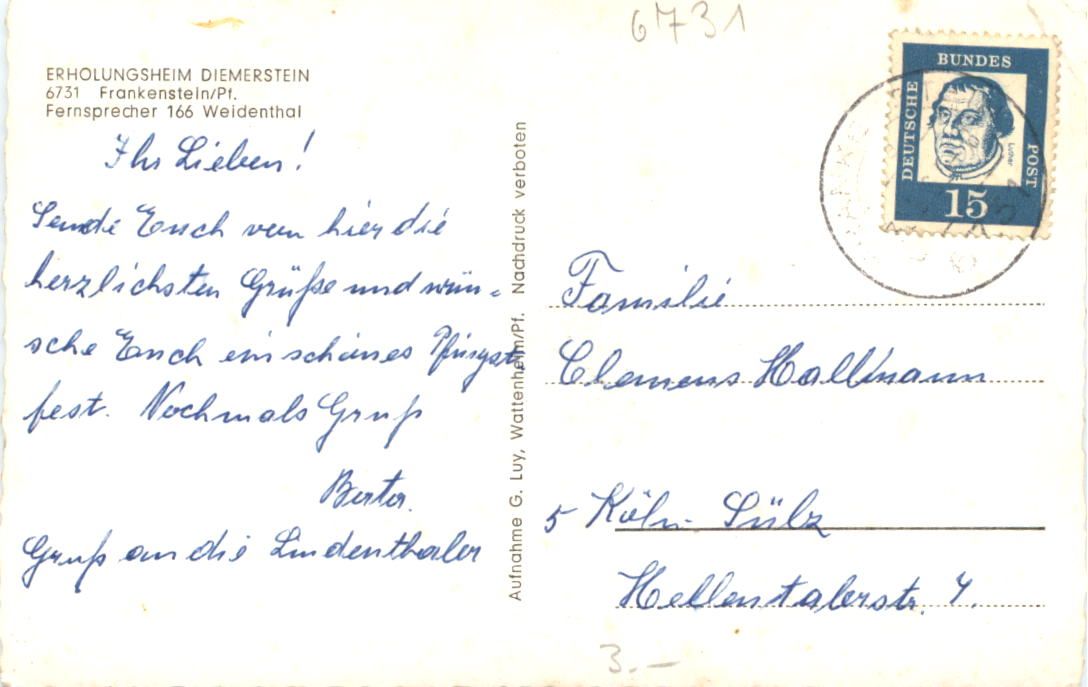 6731
ERHOLUNGSHEIM DIEMERSTEIN
6731 Frankenstein/Pf.
Fernsprecher 166 Weidenthal
Ihr Lieben!
Sende Euch von hier die
herzlichsten Grüße und wün-
sche Euch ein schönes Pfingst-
fest. Nochmals Gruß
Gruß an die Lindenthaler
Aufnahme G. Luy, Wattenheim/Pf. Nachdruck verboten
DEUTSCHE BUNDES POST
Luther
15
Familie
Clemens Hallmann
5 Köln-Sülz
Hellentalerstr.
3.-